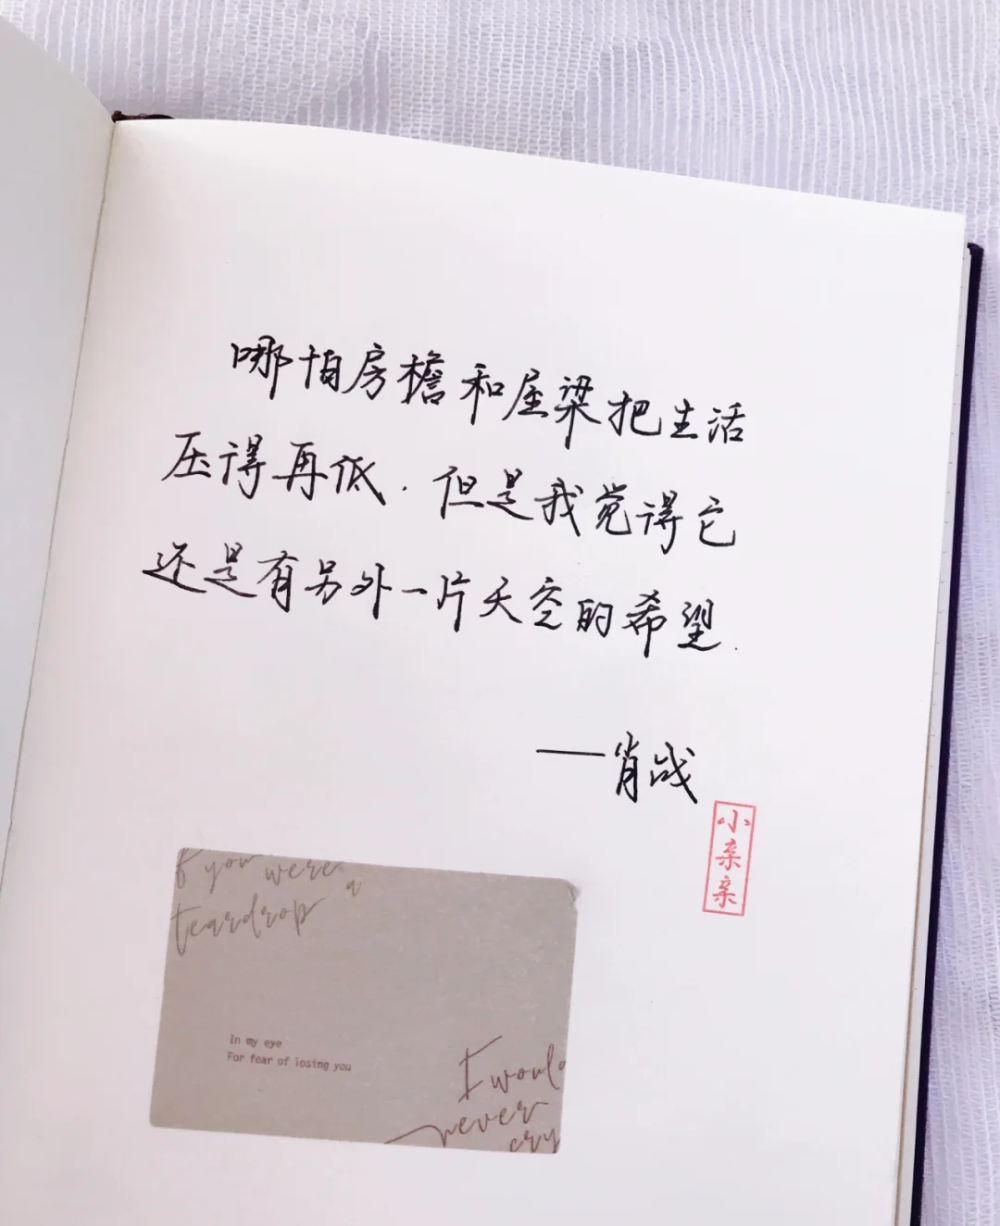 哪怕房檐和屋梁把生活
压得再低.但是我觉得它
还是有另外一片天空的希望.
——肖战
小亲亲
f you were
a
teardrop
In my eye
For fear of losing you
I would
never
cry